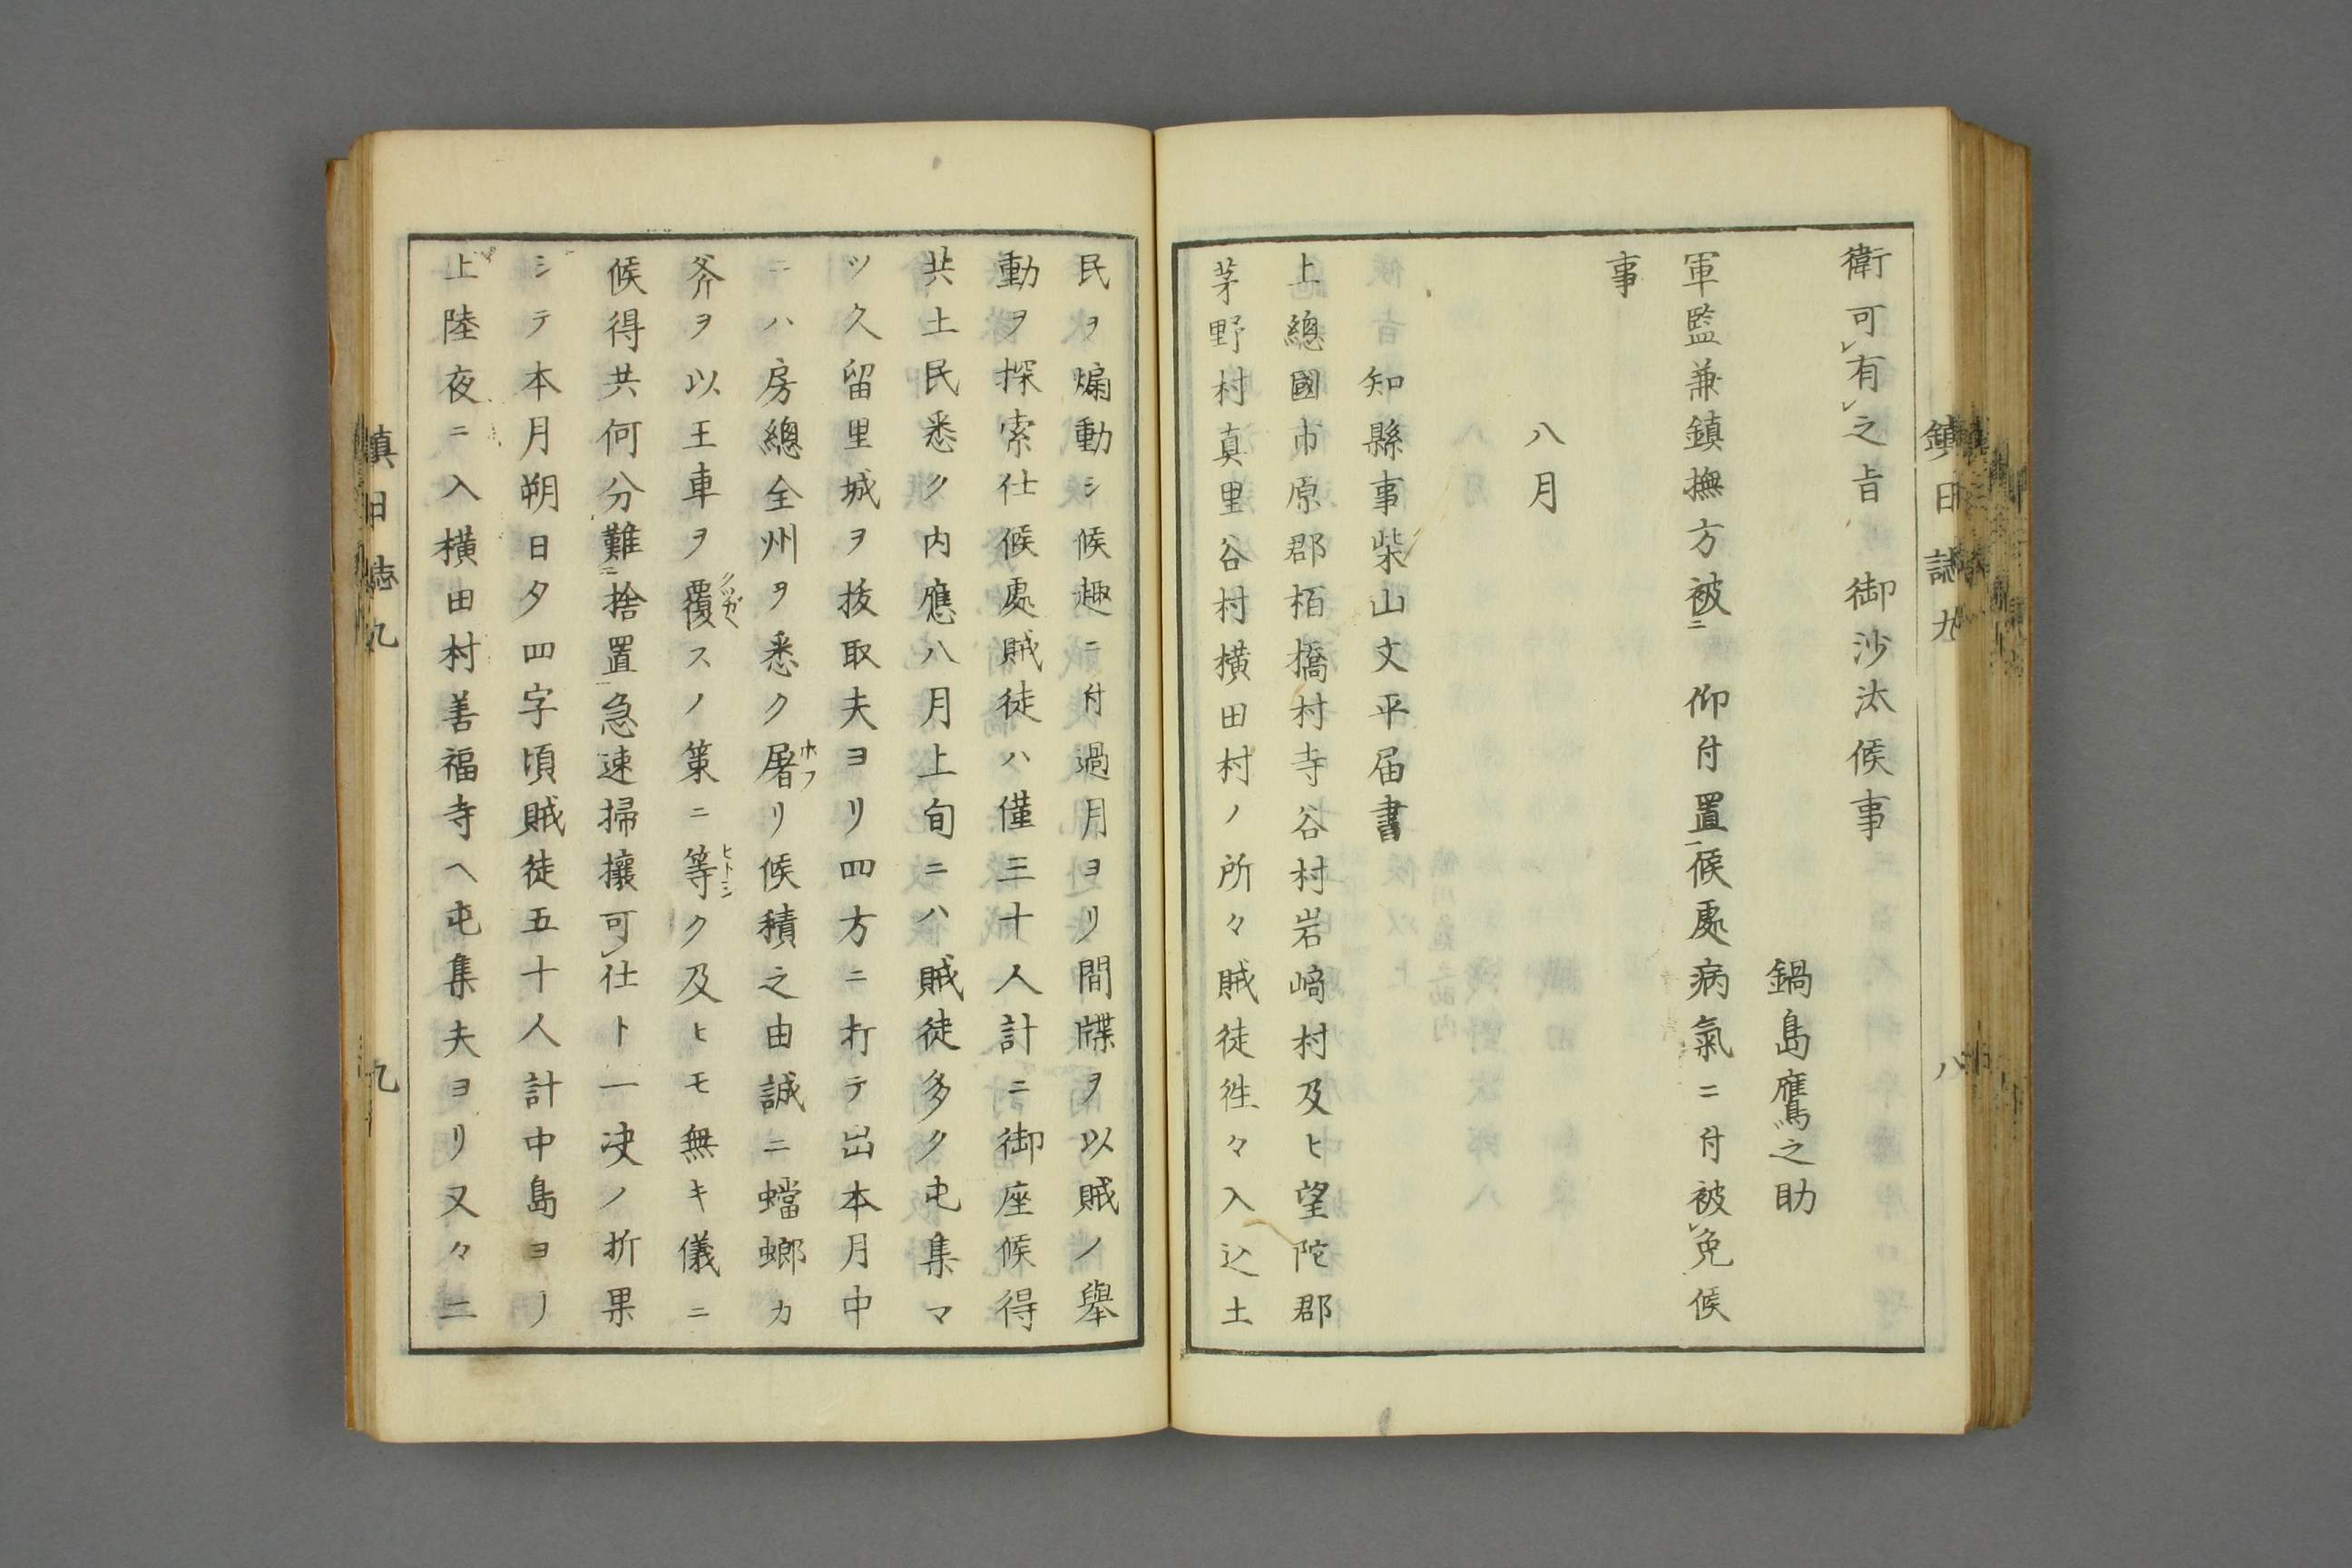 衛可レ有レ之旨　御沙汰候事
鍋島鷹之助
軍監兼鎮撫方被ニ　仰付置一候處病氣ニ付被レ免候
事
八月
知縣事柴山文平届書
上總國市原郡栢橋村寺谷村岩﨑村及ヒ望陀郡
茅野村真里谷村横田村ノ所々賊徒徃々入込土
鎮日誌九
八
民ヲ煽動シ候趣ニ付過月ヨリ間牒ヲ以賊ノ舉
動ヲ探索仕候處賊徒ハ僅三十人計ニ御座候得
共土民悉ク内應八月上旬ニハ賊徒多ク屯集マ
ツ久留里城ヲ抜取夫ヨリ四方ニ打テ出本月中
ニハ房總全州ヲ悉ク屠ホフリ候積之由誠ニ蟷螂カ
斧ヲ以王車ヲ覆クツガヘスノ策ニ等ヒトシク及ヒモ無キ儀ニ
候得共何分難ニ捨置一急速掃攘可レ仕ト一决ノ折果
シテ本月朔日夕四字頃賊徒五十人計中島ヨリ
上陸夜ニ入横田村善福寺ヘ屯集夫ヨリ又々二
鎮日誌九
九